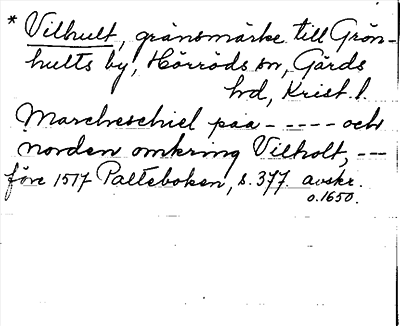 * Vilhult, gränsmärke till Grön-
hults by, Hörröds sn, Gärds
hd, Krist. l.
Marcheschiel paa - - - - - och
norden omkring Vilholt, ---
före 1517 Palteboken, s. 377. avskr.
o. 1650.